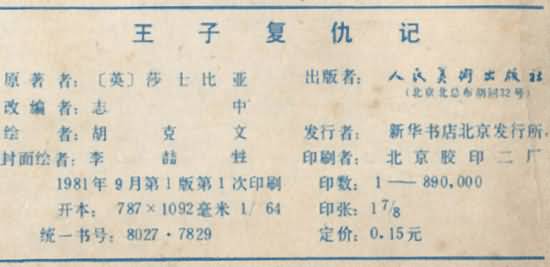 王子复仇记
原著者：〔英〕莎士比亚
改编者：志中
绘者：胡克文
封面绘者：李喆甡
1981年9月第1版第1次印刷
开本：787×1092毫米 1/64
统一书号：8027·7829
出版者：人民美术出版社
（北京北总布胡同32号）
发行者：新华书店北京发行所
印刷者：北京胶印二厂
印数：1—890,000
印张：1 7/8
定价：0.15元